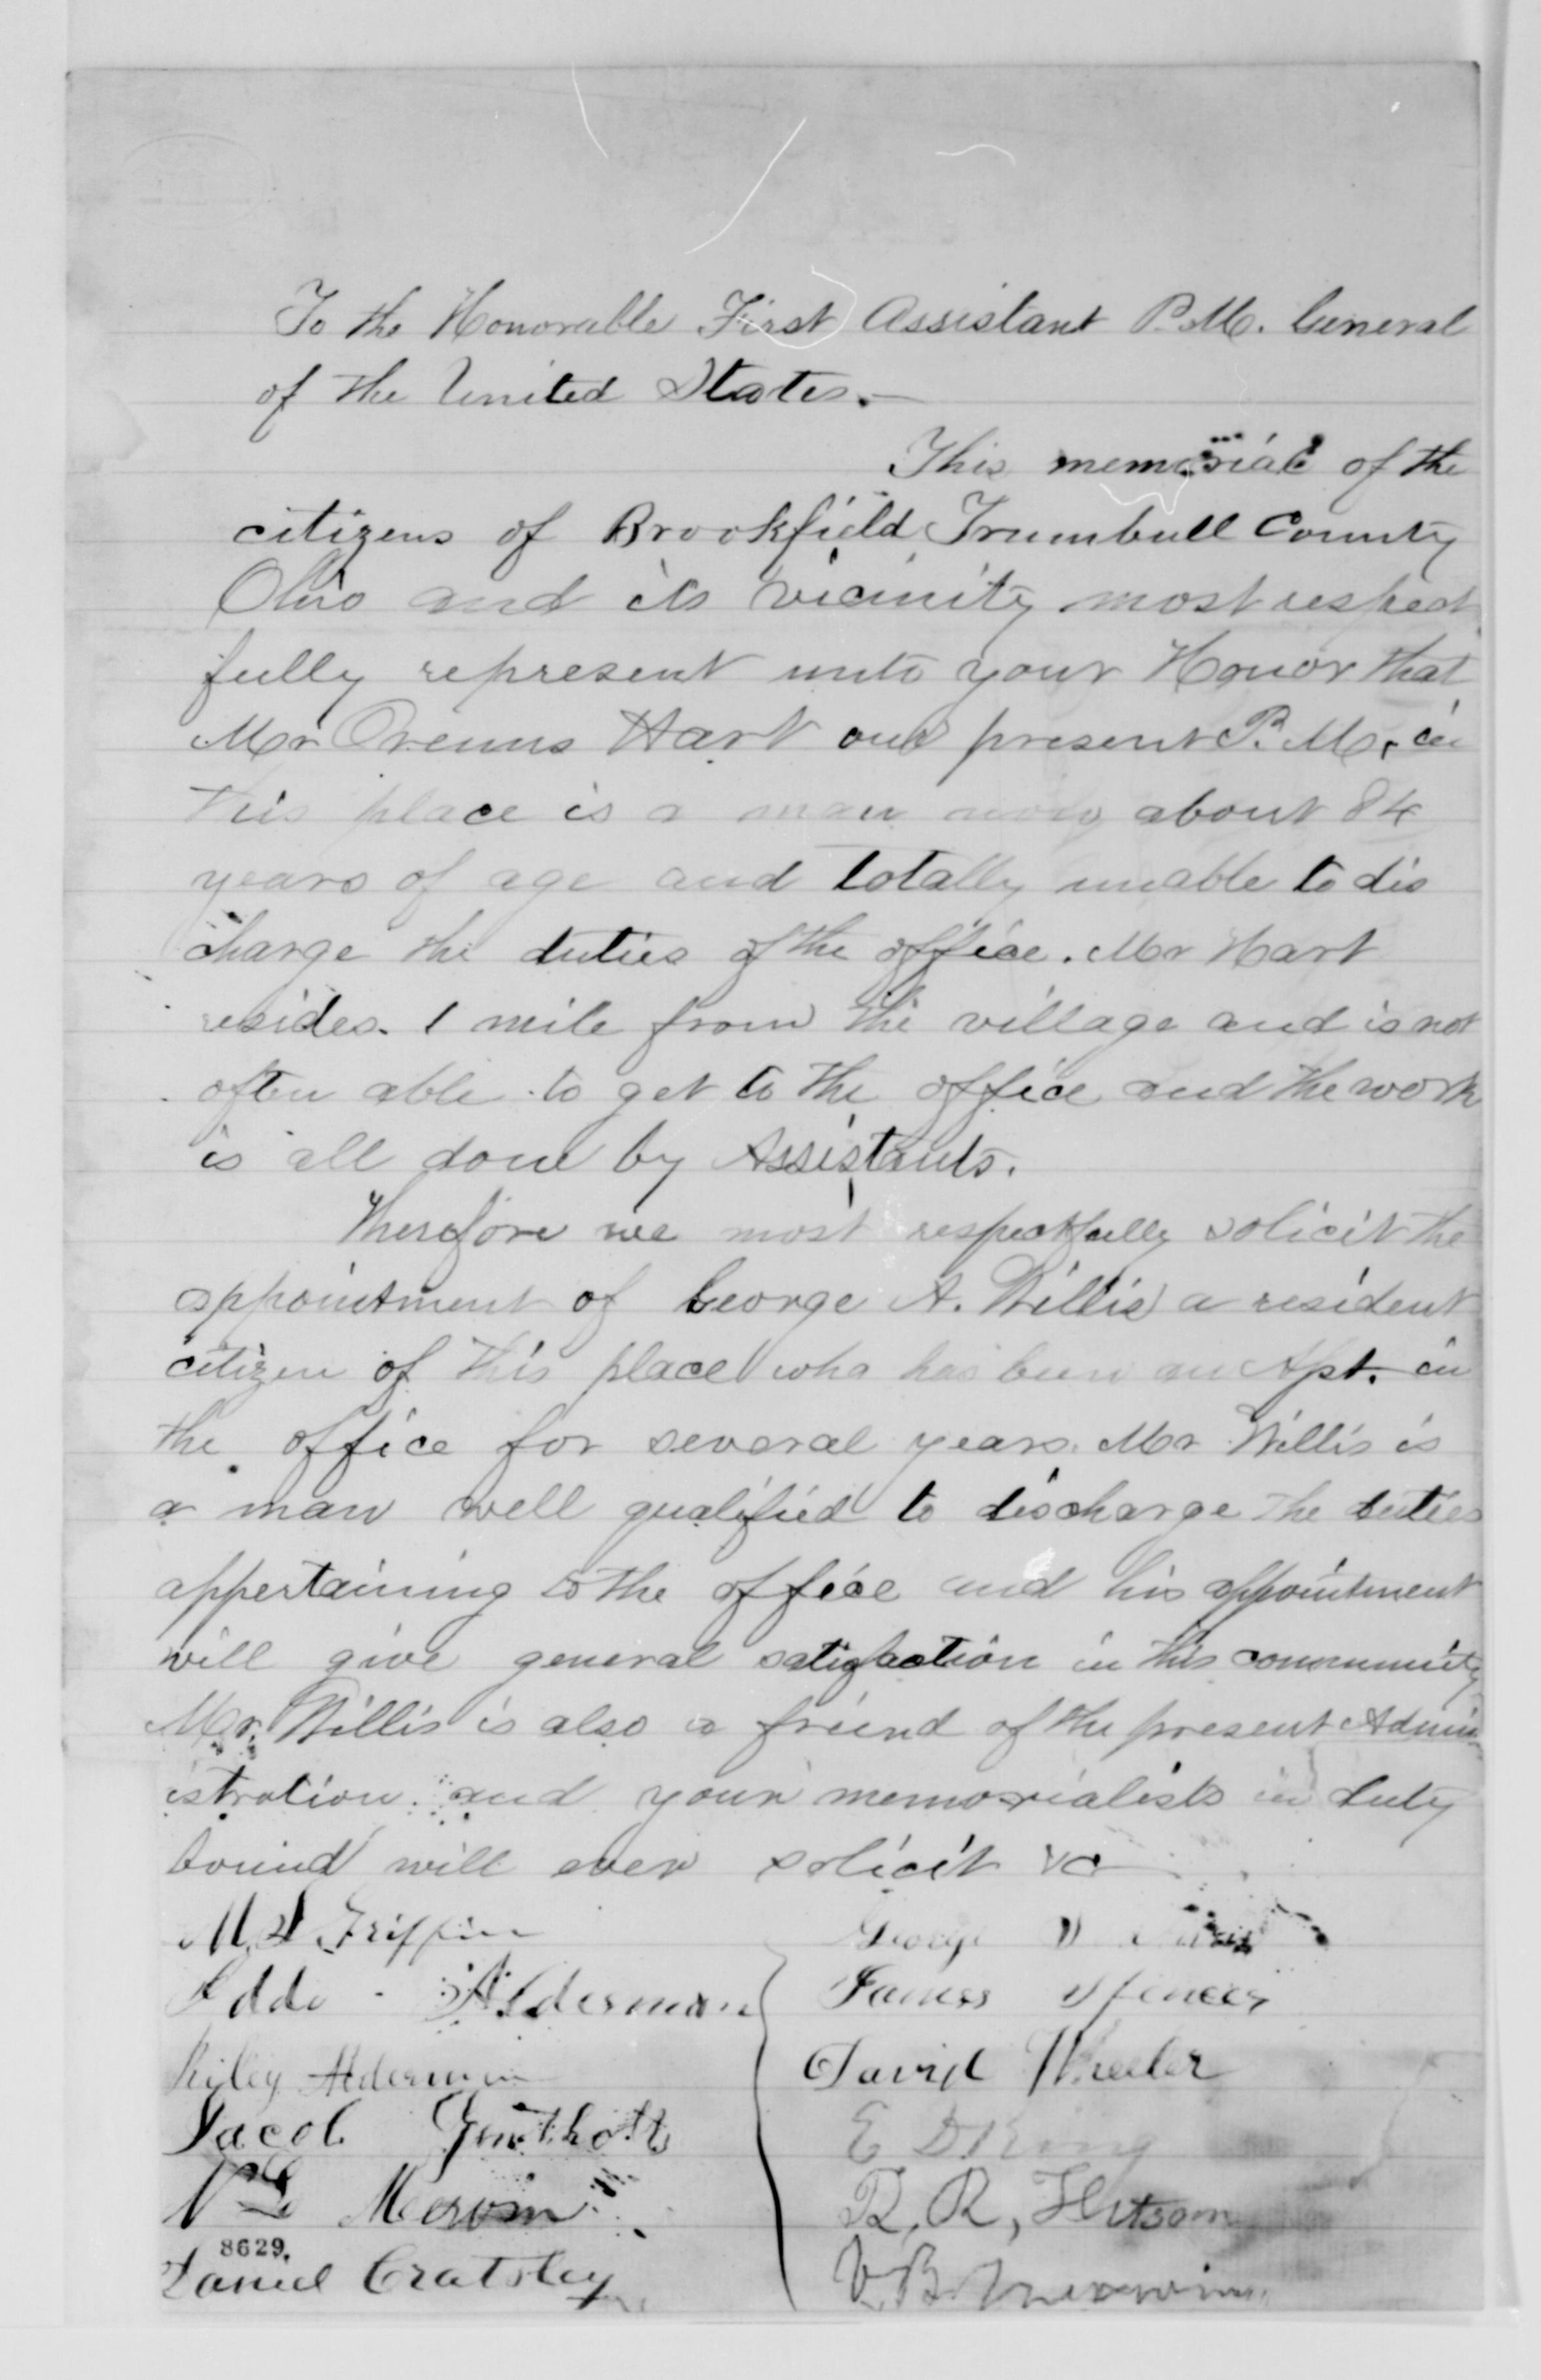 To the Honorable First Assistant P.M. General
of the United States.—
This memorial of the
citizens of Brookfield Trumbull County
Ohio and its vicinity most respect
fully represent unto your Honor that
Mr Orenus Hart our present P.M. in
this place is a man now about 84
years of age and totally unable to dis
charge the duties of the office. Mr Hart
resides 1 mile from the village and is not
often able to get to the office and the work
is all done by Assistants.
Therefore we most respectfully solicit the
appointment of George A. Willis a resident
citizen of this place who has been an in
the office for several years. Mr Willis is
a man well qualified to discharge the duties
appertaining to the office and his appointment
will give general satisfaction in this community
Mr. Willis is also a friend of the present Admin
istration and your memorialists in duty
bound will ever solicit &c
M. Griffin
Alderman
Riley Alderman
Jacob
8629.
Daniel Cratsley
George
James Spencer
David Wheeler
E D King
R, Hutson